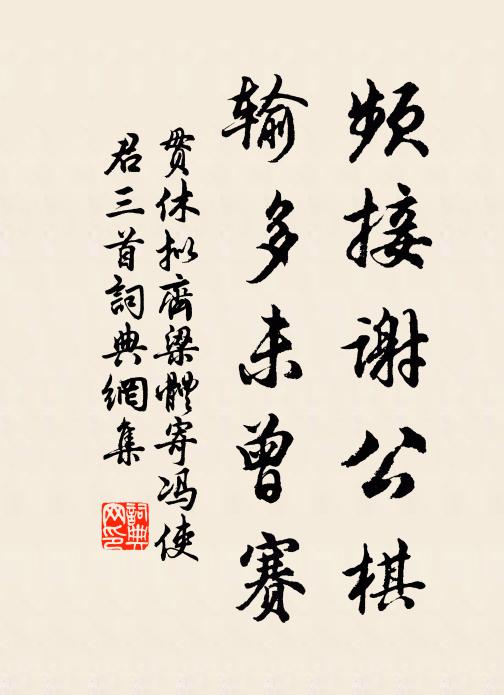 频接谢公棋
输多未曾赛
贯休拟齐梁體寄冯使
君三首詞典網集
詞典
网印